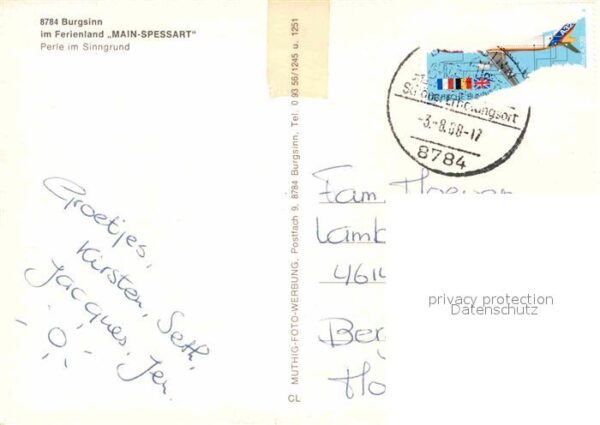 8784 Burgsinn
im Ferienland „MAIN-SPESSART“
Perle im Sinngrund
Groetjes,
Kirsten, Seth,
Jacques, Jen.
MUTHIG-FOTO-WERBUNG, Postfach 9, 8784 Burgsinn, Tel. 0 93 56/1245 u. 1251
CL
Erholungsort
-3.-8.88-17
8784
Fam
Lamb
4614
Ber
Ho
privacy protection
Datenschutz